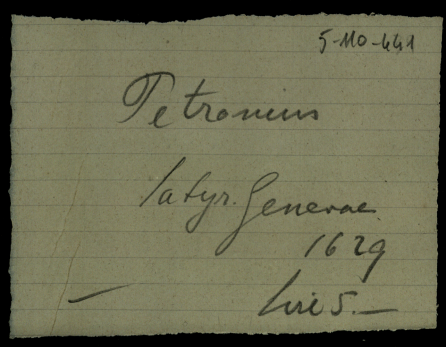 5-110-441
Petronius
Satyr. Genevae
1629
Lire 5.—